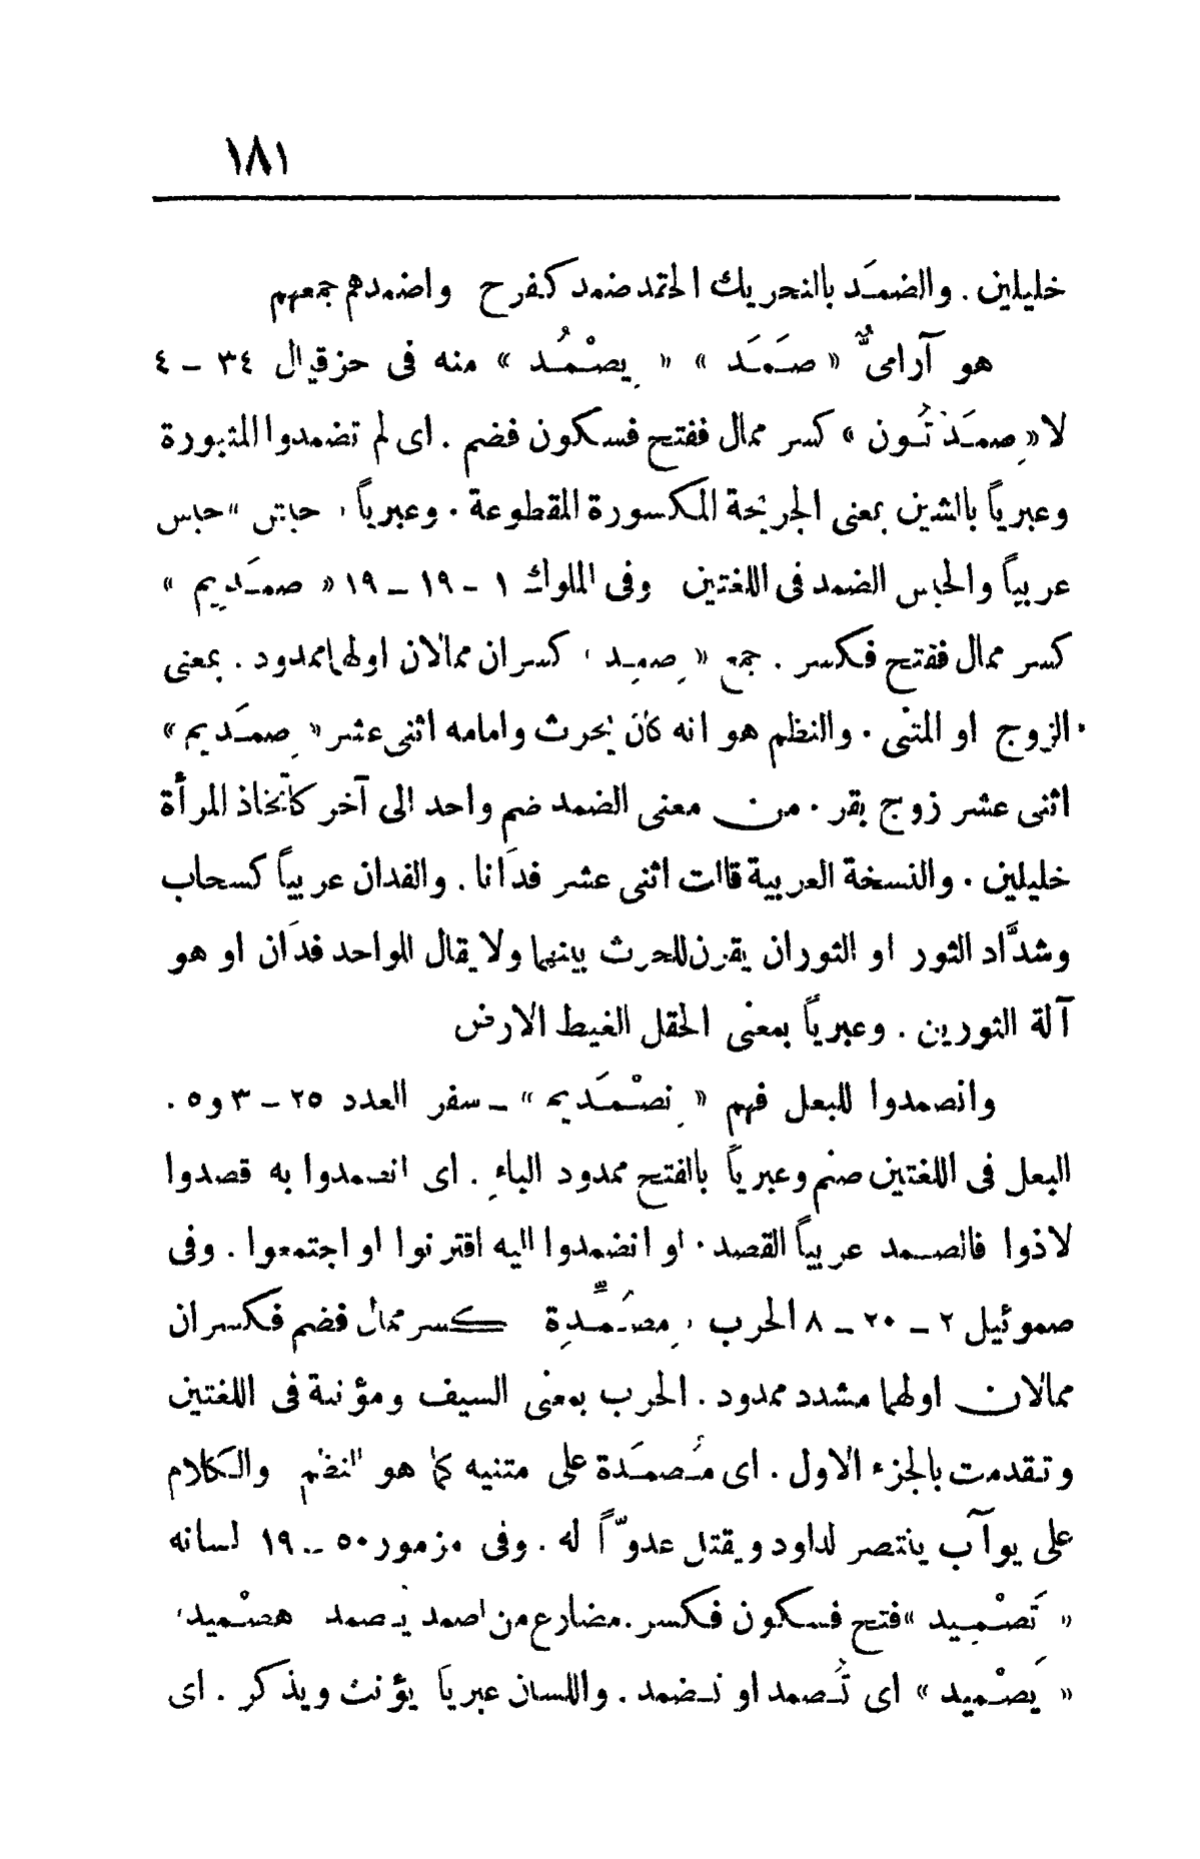 ١٨١
خليلين . والضمَد بالتحريك الحقد ضمد كفرح واضمدهم جمعهم
هو آرامىٌّ « صَمَد » « يِصْمُد » منه فى حزقيال ٣٤ – ٤
لا « صِمَدْتُون » كسر ممال ففتح فسكون فضم . اى لم تضمدوا المثبورة
وعبرياً بالشين بمعنى الجريحة المكسورة المقطوعة . وعبرياً ‹ حابش " حبس
عربياً والحبس الضمد فى اللغتين وفى الملوك ١ – ١٩ – ١٩ « صمَدِيم »
كسر ممال ففتح فكسر . جمع « صِمِد ‹ كسران ممالان اولهما ممدود . بمعنى
الزوج او المثنى . والنظم هو انه كان يحرث وامامه اثنى عشر « صِمَديم »
اثنى عشر زوج بقر . من معنى الضمد ضم واحد الى آخر كاتخاذ المرأة
خليلين . والنسخة العربية قالت اثنى عشر فدانا . والفدان عربياً كسحاب
وشدَّاد الثور او الثوران يقرن للحرث بينهما ولا يقال للواحد فدان او هو
آلة الثورين . وعبرياً بمعنى الحقل الغيط الارض
وانصمدوا للبعل فهم « نِصْمَديم » – سفر العدد ٢٥ – ٣ و ٥ .
البعل فى اللغتين صنم وعبرياً بالفتح ممدود الباءِ . اى انصمدوا به قصدوا
لاذوا فالصمد عربياً القصد . او انضمدوا اليه اقترنوا او اجتمعوا . وفى
صموئيل ٢ – ٢٠ – ٨ الحرب ‹ مِصُمِّدِة كسر ممال فضم فكسران
ممالان اولهما مشدد ممدود . الحرب بمعنى السيف ومؤنثة فى اللغتين
وتقدمت بالجزء الاول . اى مُصمَدة على متنيه كما هو النظم والكلام
على يوآب ينتصر لداود ويقتل عدوّاً له . وفى مزمور ٥٠ – ١٩ لسانه
« تَصْمِيد » فتح فسكون فكسر . مضارع من اصمد يُصمد هصْميد ‹
« يَصْميد » اى تُصمد او تضمد . واللسان عبرياً يؤنث ويذكر . اى